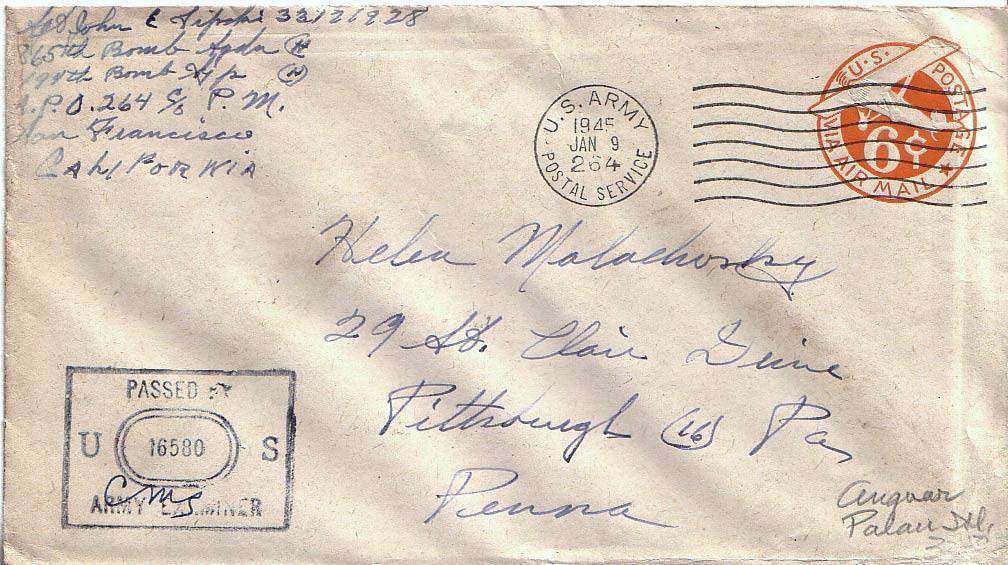 John E Lipski 33121928
865th Bomb Sqdn (H)
494th Bomb Grp (H)
A.P.O. 264 c/o P.M.
San Francisco
California
U.S. ARMY
1945
JAN 9
264
POSTAL SERVICE
U.S. POSTAGE
6¢
VIA AIR MAIL
Helen Malachosky
29 St. Clair
Pittsburgh (16) Pa,
Penna
PASSED BY
U 16580 S
CMS
ARMY EXAMINER
Anguar
Palau Isl,